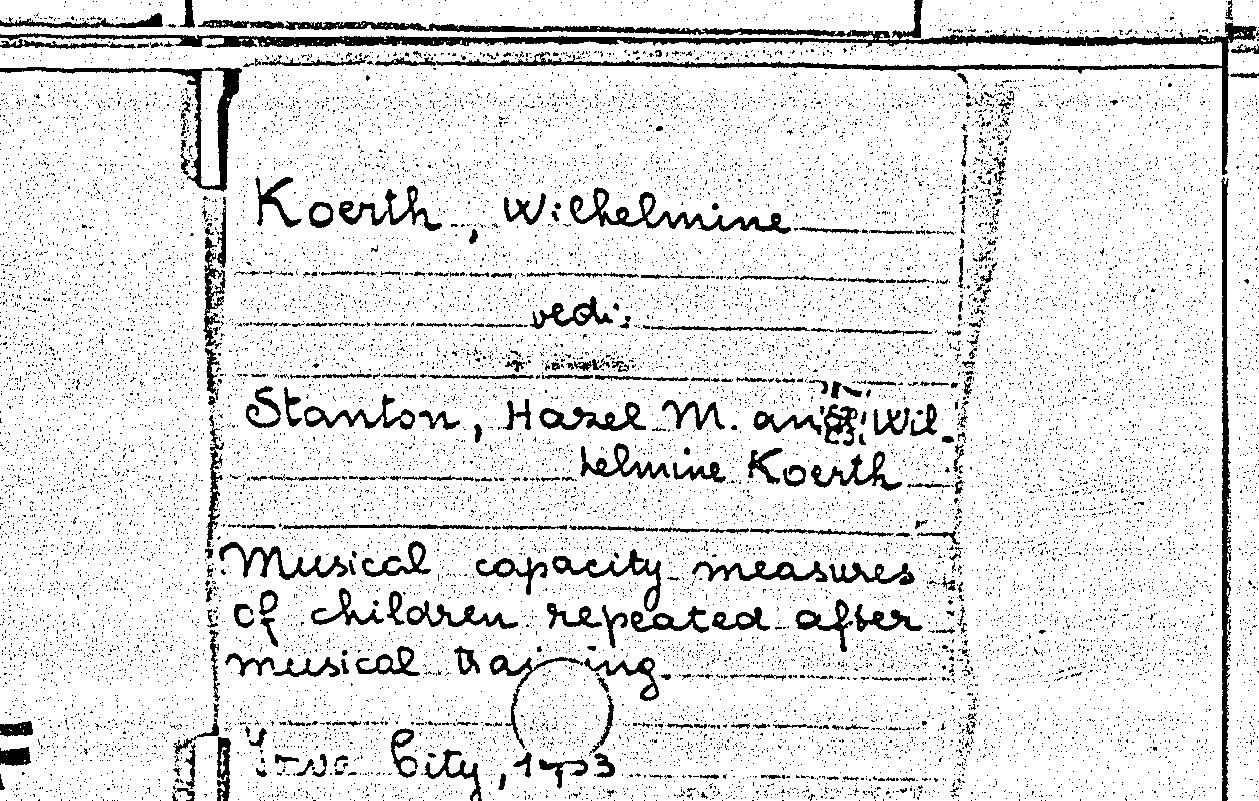 Koerth, Wilhelmine
vedi:
Stanton, Hazel M. and Wil-
helmine Koerth
Musical capacity measures
of children repeated after
musical training.
City,